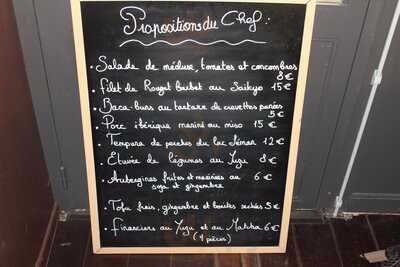 Propositions du Chef :
. Salade de méduse, tomates et concombres
8 €
. Filet de Rouget barbet au Saikyo 15 €
. Baca-buns au tartare de crevettes panées
5 €
. Porc ibérique mariné au miso 15 €
. Tempura de perches du lac Léman 12 €
. Etuvée de légumes au Yuzu 8 €
. Aubergines frites et marinées au 6 €
soja et gingembre
. Tofu frais, gingembre et bonites sechées 5 €
. Financiers au Yuzu et au Matcha 6 €
(4 pièces)